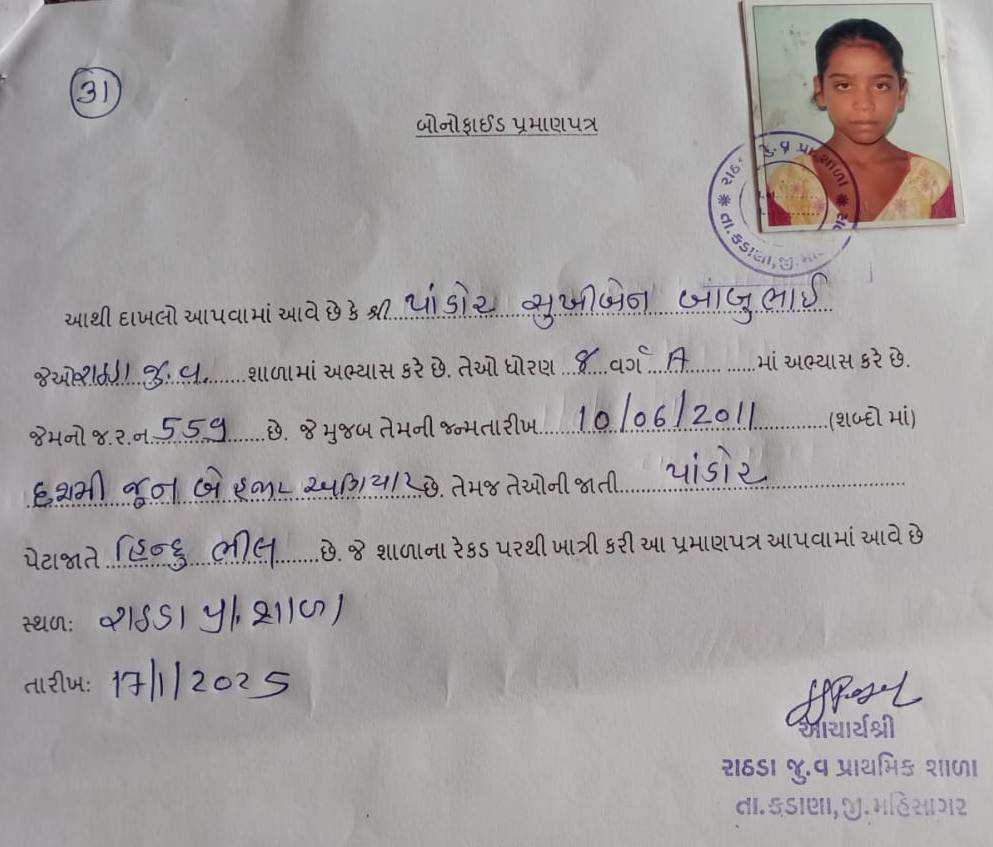 31
બોનોફાઈડ પ્રમાણપત્ર
રાઠ. જુ.વ પ્રા. શાળા * રા * તા.કડાણા,જી.મ
આથી દાખલો આપવામાં આવે છે કે શ્રી પાંડોર સુખીબેન બાબુભાઈ
જેઓ રાઠડા જુ.વ. શાળામાં અભ્યાસ કરે છે. તેઓ ધોરણ ૪ વર્ગ A માં અભ્યાસ કરે છે.
જેમનો જ.ર.ન 559 છે. જે મુજબ તેમની જન્મતારીખ 10/06/2011 (શબ્દો માં)
દશમી જૂન બે હજાર અગિયાર છે. તેમજ તેઓની જાતી પાંડોર
પેટાજાતે હિન્દુ ભીલ છે. જે શાળાના રેકડ પરથી ખાત્રી કરી આ પ્રમાણપત્ર આપવામાં આવે છે
સ્થળ: રાઠડા પ્રા. શાળા
તારીખ: 17/1/2025
આચાર્યશ્રી
રાઠડા જુ.વ પ્રાથમિક શાળા
તા.કડાણા,જી.મહિસાગર